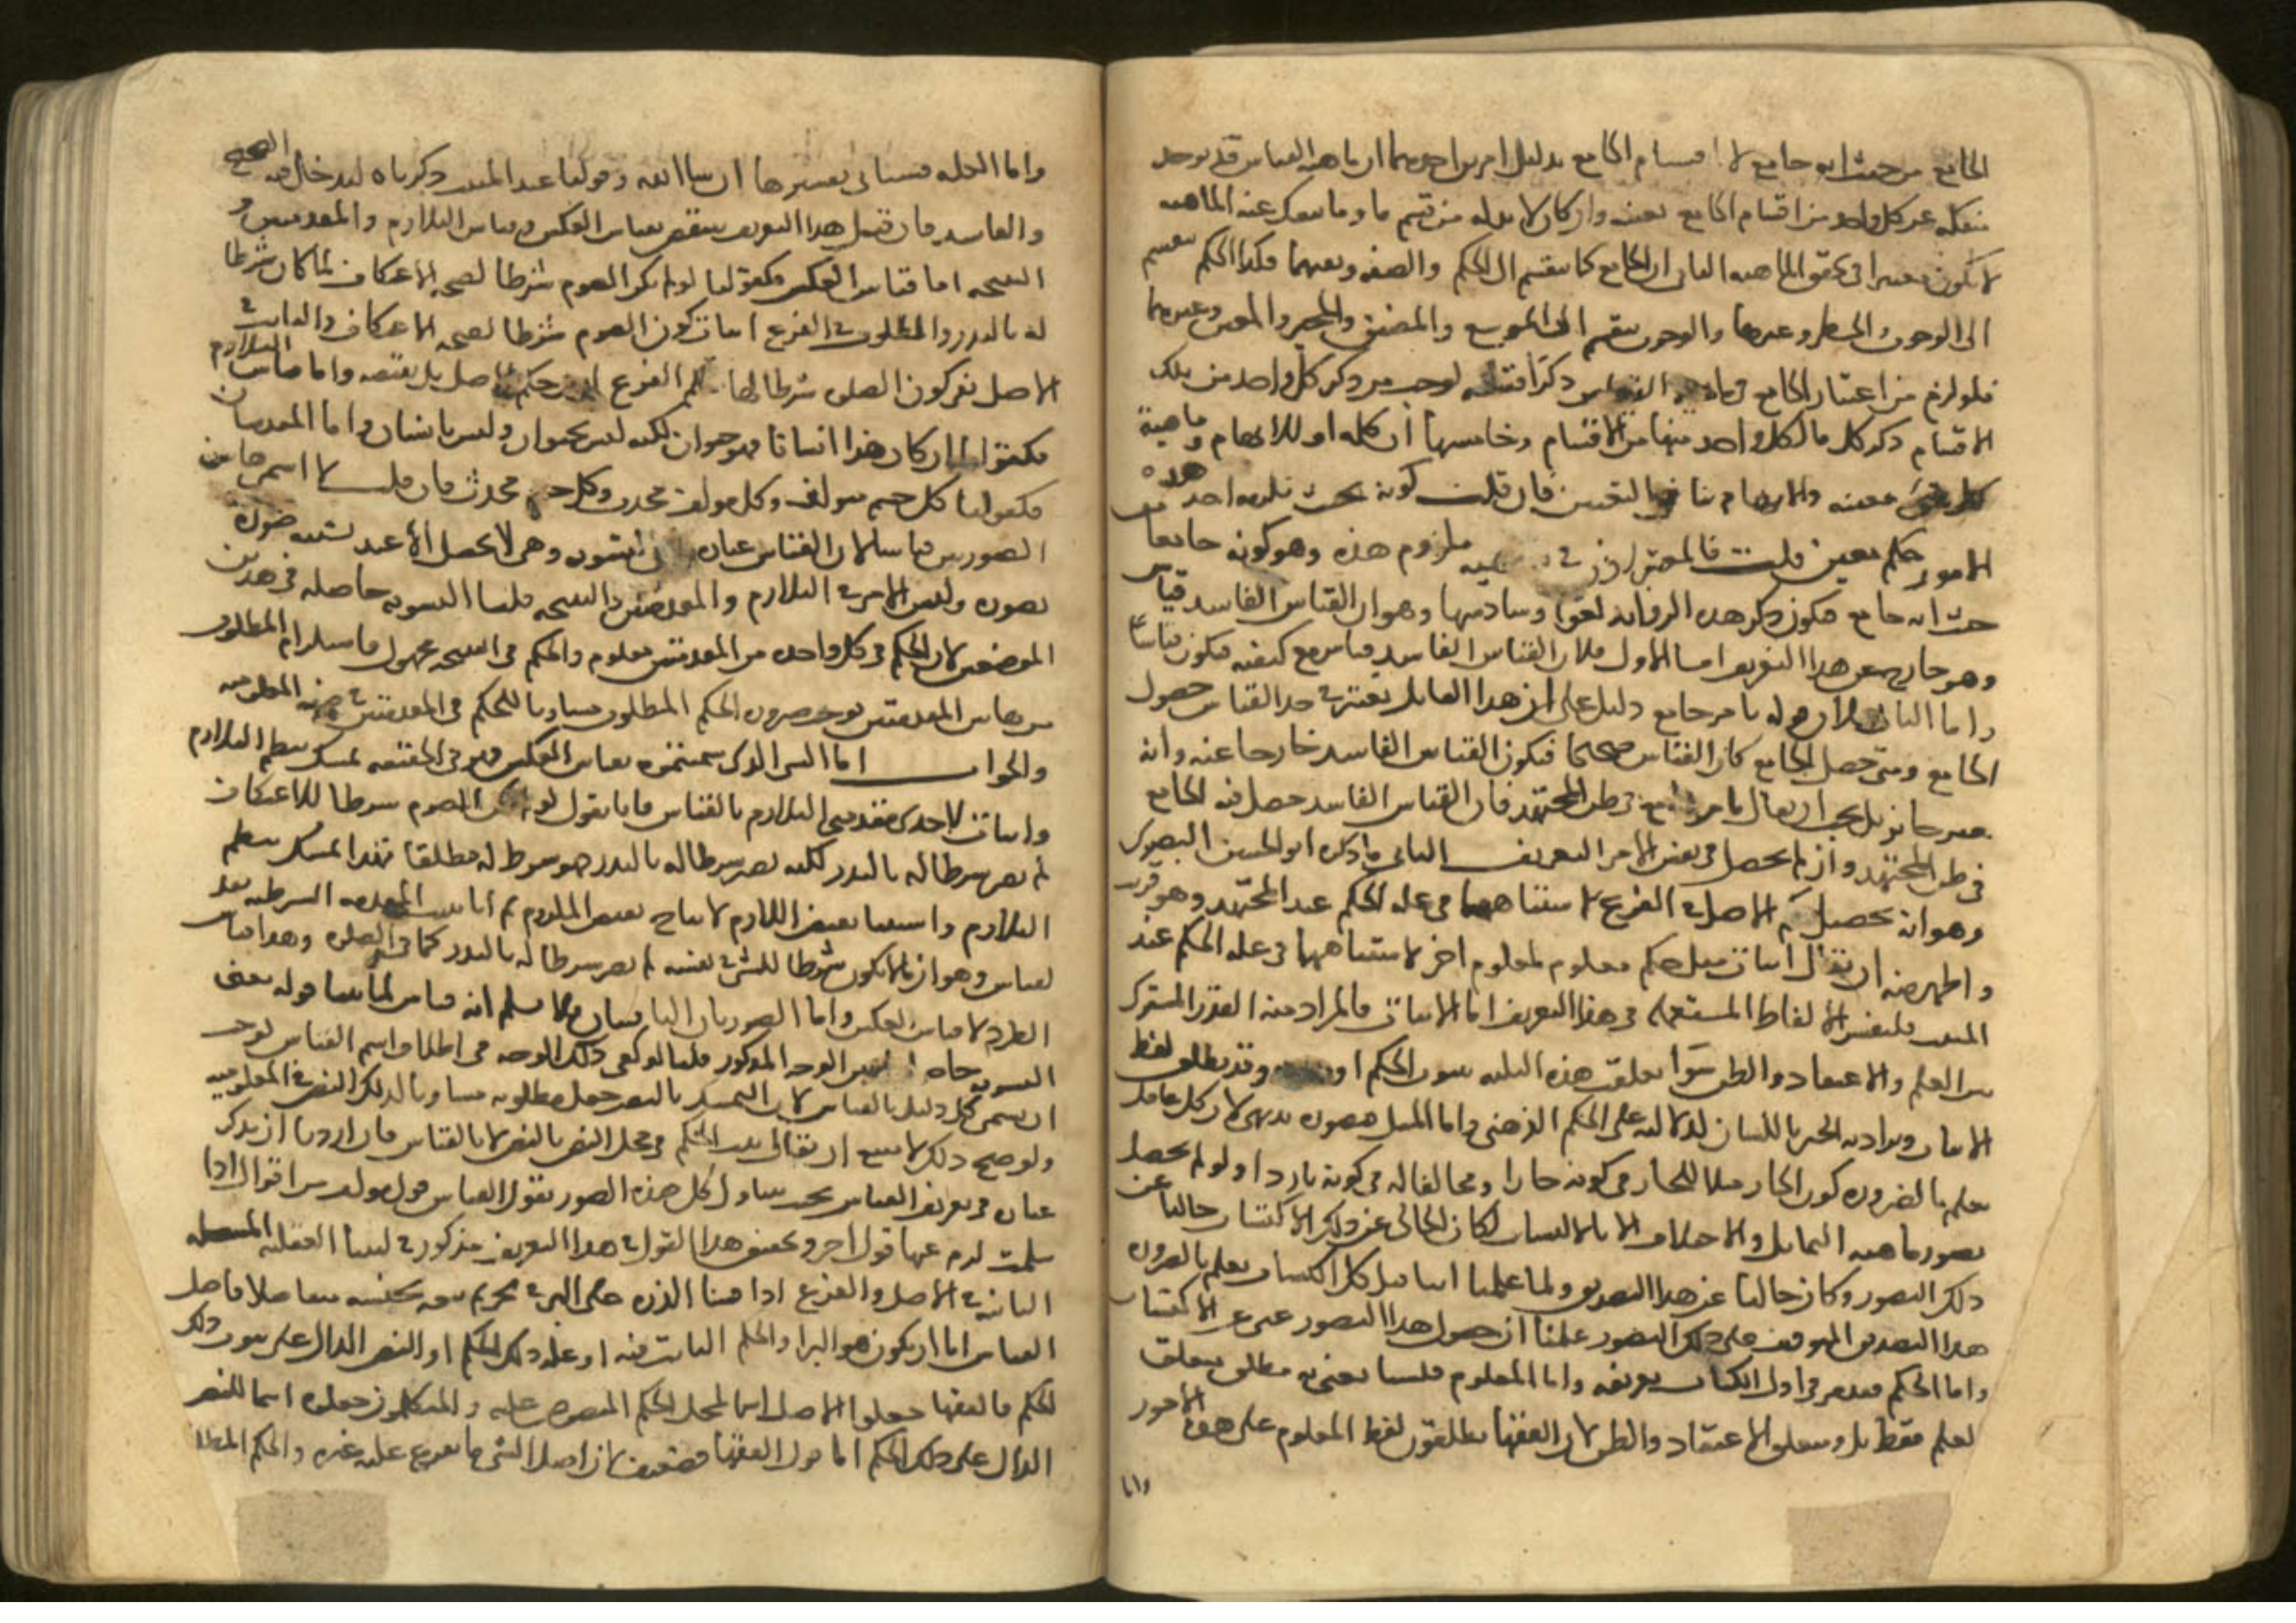 الجامع من حيث انه جامع لا اقسام الجامع بدليل امرين احدهما ان ماهية القياس قد توجد
منفكة عن كل واحد من اقسام الجامع بعينه وان كان لا بد له من قسم ما وما ينفك عنه الماهية
لا يكون معتبرا في تحقق الماهية الثاني ان الجامع كما ينقسم الى الحكم والصفة ونفيهما فكذا الحكم ينقسم
الى الوجوب والحظر وغيرهما والوجوب ينقسم الى الموسع والمضيق والمخير والمعين وغيرهما
فلو لزم من اعتبار الجامع في ماهية القياس ذكر اقسامه لوجب من ذكر كل واحد من تلك
الاقسام ذكر كل ما لكل واحد منها من الاقسام وخامسها ان كلمة او للابهام وماهية
كل شي معينة والابهام ينافي التعيين فان قلت كونه بحيث يلزمه احد هذه
الامور حكم معين قلت فالمعتبر اذن في ملزوم هذه وهو كونه جامعا من
حيث انه جامع فيكون ذكر هذه الزوائد لغوا وسادسها وهو ان القياس الفاسد قياس
وهو خارج عن هذا التعريف اما الاول فلان القياس الفاسد قياس مع كيفية فيكون قياسا
واما الثاني فلان قوله بامر جامع دليل على ان هذا القايل يعتبر في حد القياس حصول
الجامع ومتى حصل الجامع كان القياس صحيحا فيكون القياس الفاسد خارجا عنه وانه
غير جائز بل يجب ان يقال بامر جامع في ظن المجتهد فان القياس الفاسد حصل فيه الجامع
في ظن المجتهد وان لم يحصل في نفس الامر التعريف الثاني ما ذكره ابو الحسين البصري
وهو انه تحصيل حكم الاصل في الفرع لاشتباههما في علة الحكم عند المجتهد وهو قريب
واظهر منه ان يقال اثبات مثل حكم معلوم لمعلوم اخر لاشتباههما في علة الحكم عند
المثبت فلنفسر الالفاظ المستعملة في هذا التعريف اما الاثبات فالمراد منه القدر المشترك
بين العلم والاعتقاد والظن سوا تعلقت هذه الثلثة بثبوت الحكم او وقد يطلق لفظ
الاثبات ويراد به الخبر باللسان لدلالته على الحكم الذهني واما المثل فتصوره بديهي لان كل عاقل
يعلم بالضرورة كون الحار مثلا للحار في كونه حارا ومخالفا له في كونه باردا ولو لم يحصل
تصور ماهية التماثل والاختلاف الا بالاكتساب لكان الخالي عن ذلك الاكتساب خاليا عن
ذلك التصور وكان خاليا عن هذا التصديق ولما علمنا انا قبل كل اكتساب نعلم بالضرورة
هذا التصديق الموقوف على ذلك التصور علمنا ان حصول هذا التصور غني عن الاكتساب
واما الحكم فقد مر في اول الكتاب تعريفه واما المعلوم فلسنا نعني به مطلق متعلق
العلم فقط بل ومتعلق الاعتقاد والظن لان الفقها يطلقون لفظ المعلوم على هذه الامور
واما
واما العلة فسيأتي تفسيرها ان شا الله وقولنا عند المثبت ذكرناه ليدخل فيه الصحيح
والفاسد فان قيل هذا التعريف ينتقض بقياس العكس وقياس التلازم والمقدمتين و
النتيجة اما قياس العكس فكقولنا لو لم يكن الصوم شرطا لصحة الاعتكاف لما كان شرطا
له بالنذر والمطلوب في الفرع اثبات كون الصوم شرطا لصحة الاعتكاف والثابت في
الاصل نفي كون الصلوة شرطا لها فحكم الفرع ليس حكم الاصل بل نقيضه واما قياس التلازم
فكقولنا ان كان هذا انسانا فهو حيوان لكنه ليس بحيوان فليس بانسان واما المقدمتان
فكقولنا كل جسم مؤلف وكل مؤلف محدث فكل جسم محدث فان قلت لا اسمي هاتين
الصورتين قياسا لان القياس عبارة عن التسوية وهي لا تحصل الا عند تشبيه صورة
بصورة وليس الامر في التلازم والمقدمتين والنتيجة قلنا التسوية حاصلة في هذين
الموضعين لان الحكم في كل واحدة من المقدمتين معلوم والحكم في النتيجة مجهول فاستلزام المطلوب
من هاتين المقدمتين يوجب صيرورة الحكم المطلوب مساويا للحكم في المقدمتين في صفة المعلومية
والجواب اما الشي الذي سميتموه بقياس العكس فهو في الحقيقة تمسك بنظم التلازم
واثبات لاحدى مقدمتي التلازم بالقياس فانا نقول لو لم يكن الصوم شرطا للاعتكاف
لم يصر شرطا له بالنذر لكنه يصير شرطا له بالنذر فهو شرط له مطلقا فهذا تمسك بنظم
التلازم واستثنا نقيض اللازم لانتاج نقيض الملزوم ثم انا نثبت المقدمة الشرطية
بقياس وهو ان ما لا يكون شرطا للشي في نفسه لم يصر شرطا له بالنذر كما في الصلوة وهذا قياس
الطرد لا قياس العكس واما الصورتان الباقيتان فلا نسلم انه قياس لما بينا قوله معنى
التسوية حاصل من الوجه المذكور قلنا لو كفى ذلك الوجه في اطلاق اسم القياس لوجب
ان يسمى كل دليل بالقياس لان التمسك بالنص جعل مطلوبه مساويا لذلك النص في المعلومية
ولو صح ذلك لامتنع ان يقال ثبت الحكم في محل النص بالنص لا بالقياس فان اردنا ان نذكر
عبارة في تعريف القياس بحيث يتناول كل هذه الصور نقول القياس قول مؤلف من اقوال اذا
سلمت لزم عنها قول اخر وتحقيق هذا القول في هذا التعريف مذكور في كتبنا العقلية المسئلة
الثانية في الاصل والفرع اذا قسنا الذرة على البر في تحريم بيعه بجنسه متفاضلا فاصل
القياس اما ان يكون هو البر او الحكم الثابت فيه او علة ذلك الحكم او النص الدال على ثبوت ذلك
الحكم فالفقها جعلوا الاصل اسما لمحل الحكم المنصوص عليه والمتكلمون جعلوه اسما للنص
الدال على ذلك الحكم اما قول الفقها فضعيف لان اصل الشي ما تفرع عليه غيره والحكم المطلوب